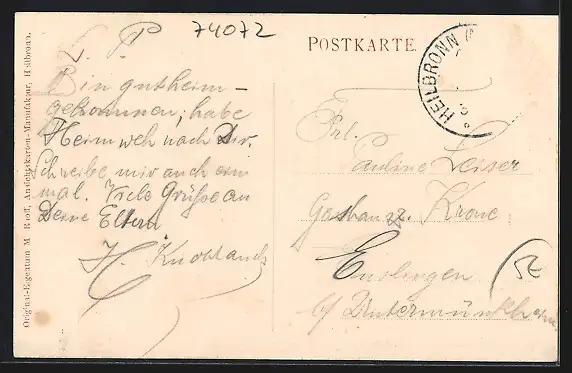 74072
L. P.
Bin gut heim-
gekommen, habe
Heimweh nach Dir.
Schreibe mir auch ein
mal. Viele Grüße an
Deine Eltern
H. Knoblauch
Original-Eigentum M. Rieff, Ansichtskarten-Manufaktur, Heilbronn.
POSTKARTE.
HEILBRONN
Frl.
Pauline Leiser
Gasthaus z. Krone
Enslingen
b/ Untermünkheim